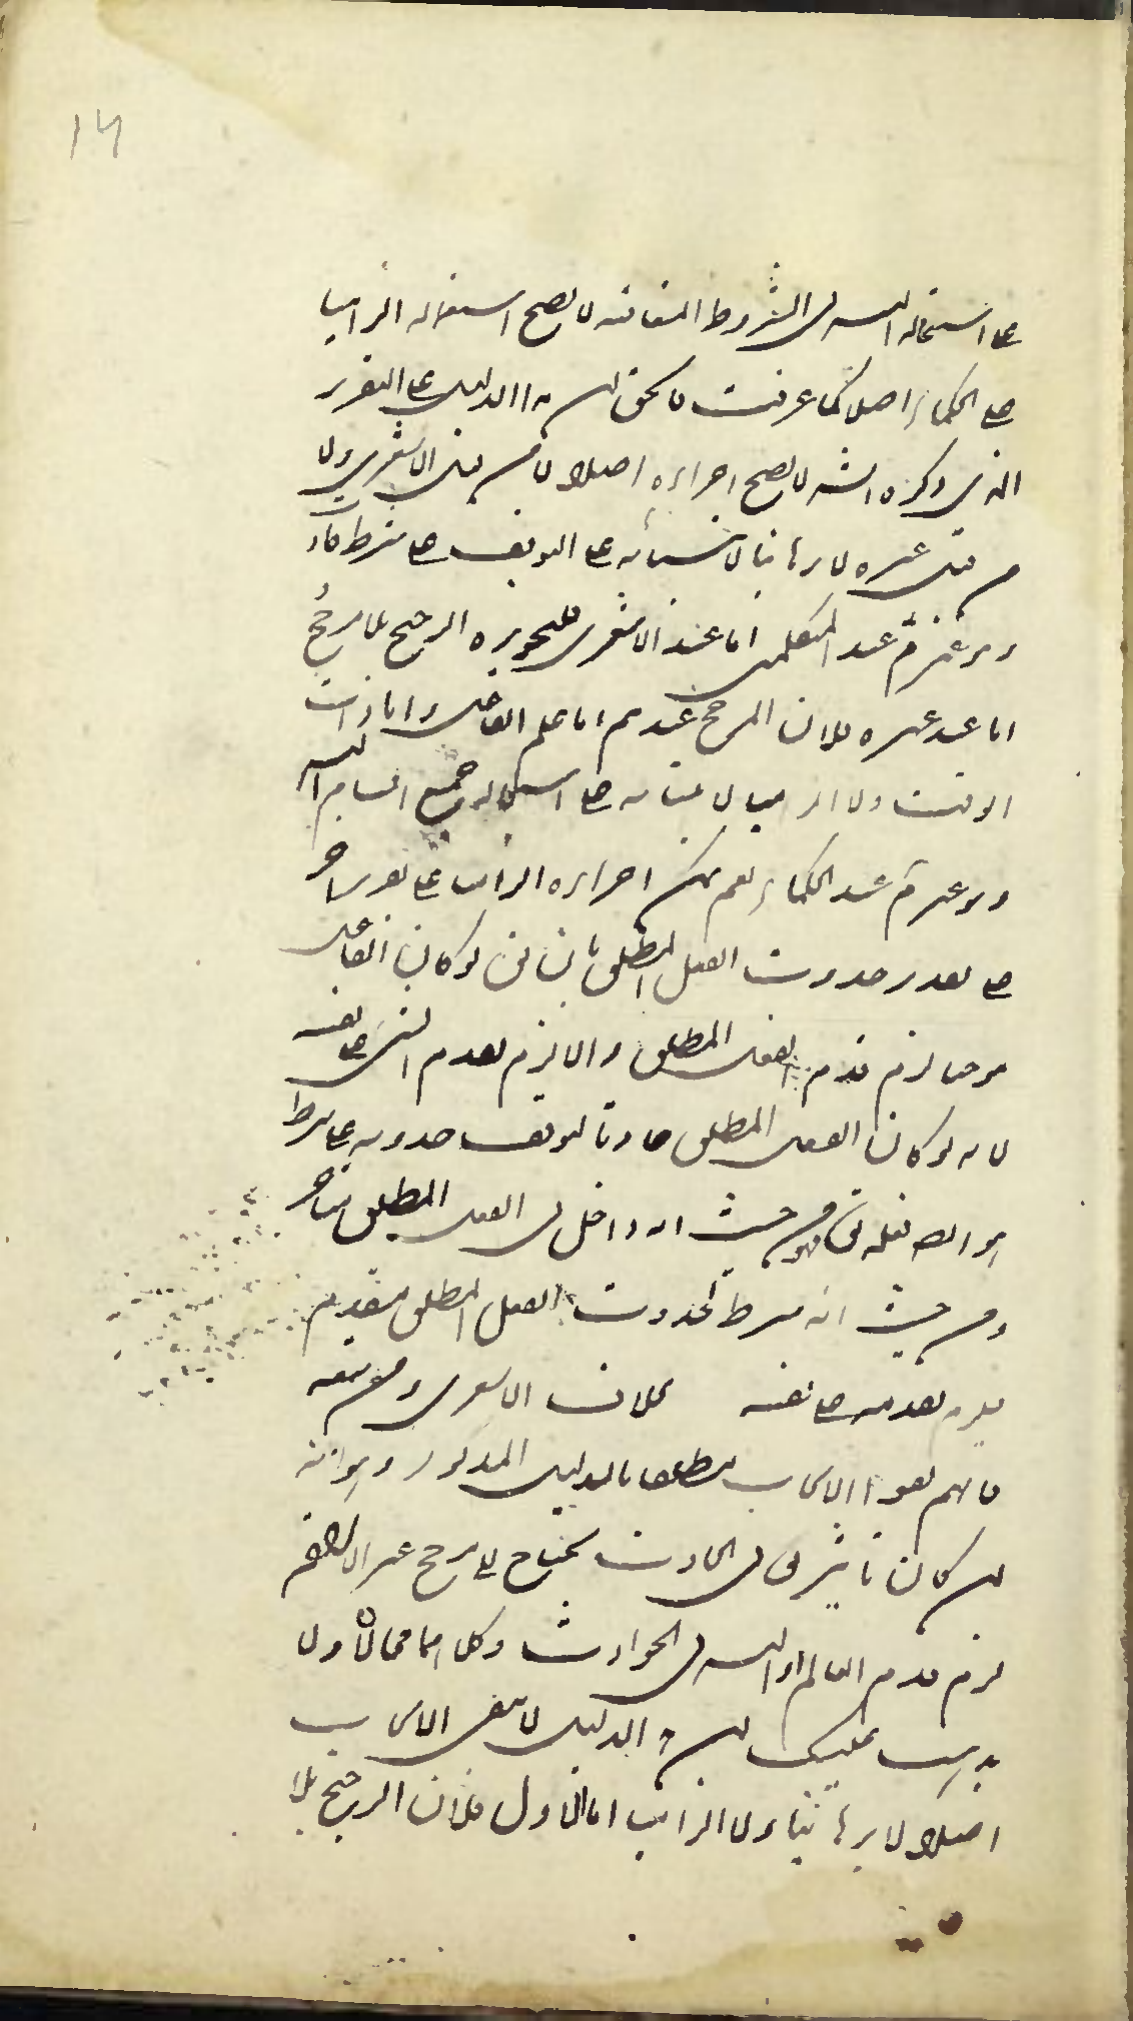 ١٦
على استحالة التسلسل في الشروط المتعاقبة لا يصح استعماله الزاميا
على الحكماء اصلا كما عرفت فالحق ان هذا الدليل على التقرير
الذي ذكره الشه لا يصح اجراؤه اصلا لا من قبل الاشعري ولا
من قبل غيره لا برهانيا لابتنائه على التوقف على شرط حادث
وهو غير تم عند المتكلمين اما عند الاشعري فلتجويزه الترجيح بلا مرجح
اما عند غيره فلان المرجح عندهم اما علم الفاعل واما ذات
الوقت ولا الزاميا لابتنائه على استحالة جميع اقسام التسلسل
وهو غير تم عند الحكماء نعم يمكن اجراؤه الزاميا على تقرير آخر
على تقدير حدوث الفعل المطلق بان نق لو كان الفاعل
موجبا لزم قدم الفعل المطلق والا لزم تقدم الشئ على نفسه
لانه لو كان الفعل المطلق حادثا لتوقف حدوثه على شرط
من حيث انه داخل في الفعل المطلق متأخر
ومن حيث انه شرط لحدوث الفعل المطلق متقدم
فيلزم تقدمه على نفسه بخلاف الاشعري ومن تبعه
فانهم نفوا الايجاب مطلقا بالدليل المذكور وهو انه
ان كان تأثيره تع في الحادث يحتاج الى مرجح غير الارادة
لزم قدم العالم او التسلسل في الحوادث وكلاهما محالان ولا
يذهب عليك ان هذا الدليل لا ينفي الايجاب
اصلا لا برهانيا ولا الزاميا اما الاول فلان الترجيح بلا